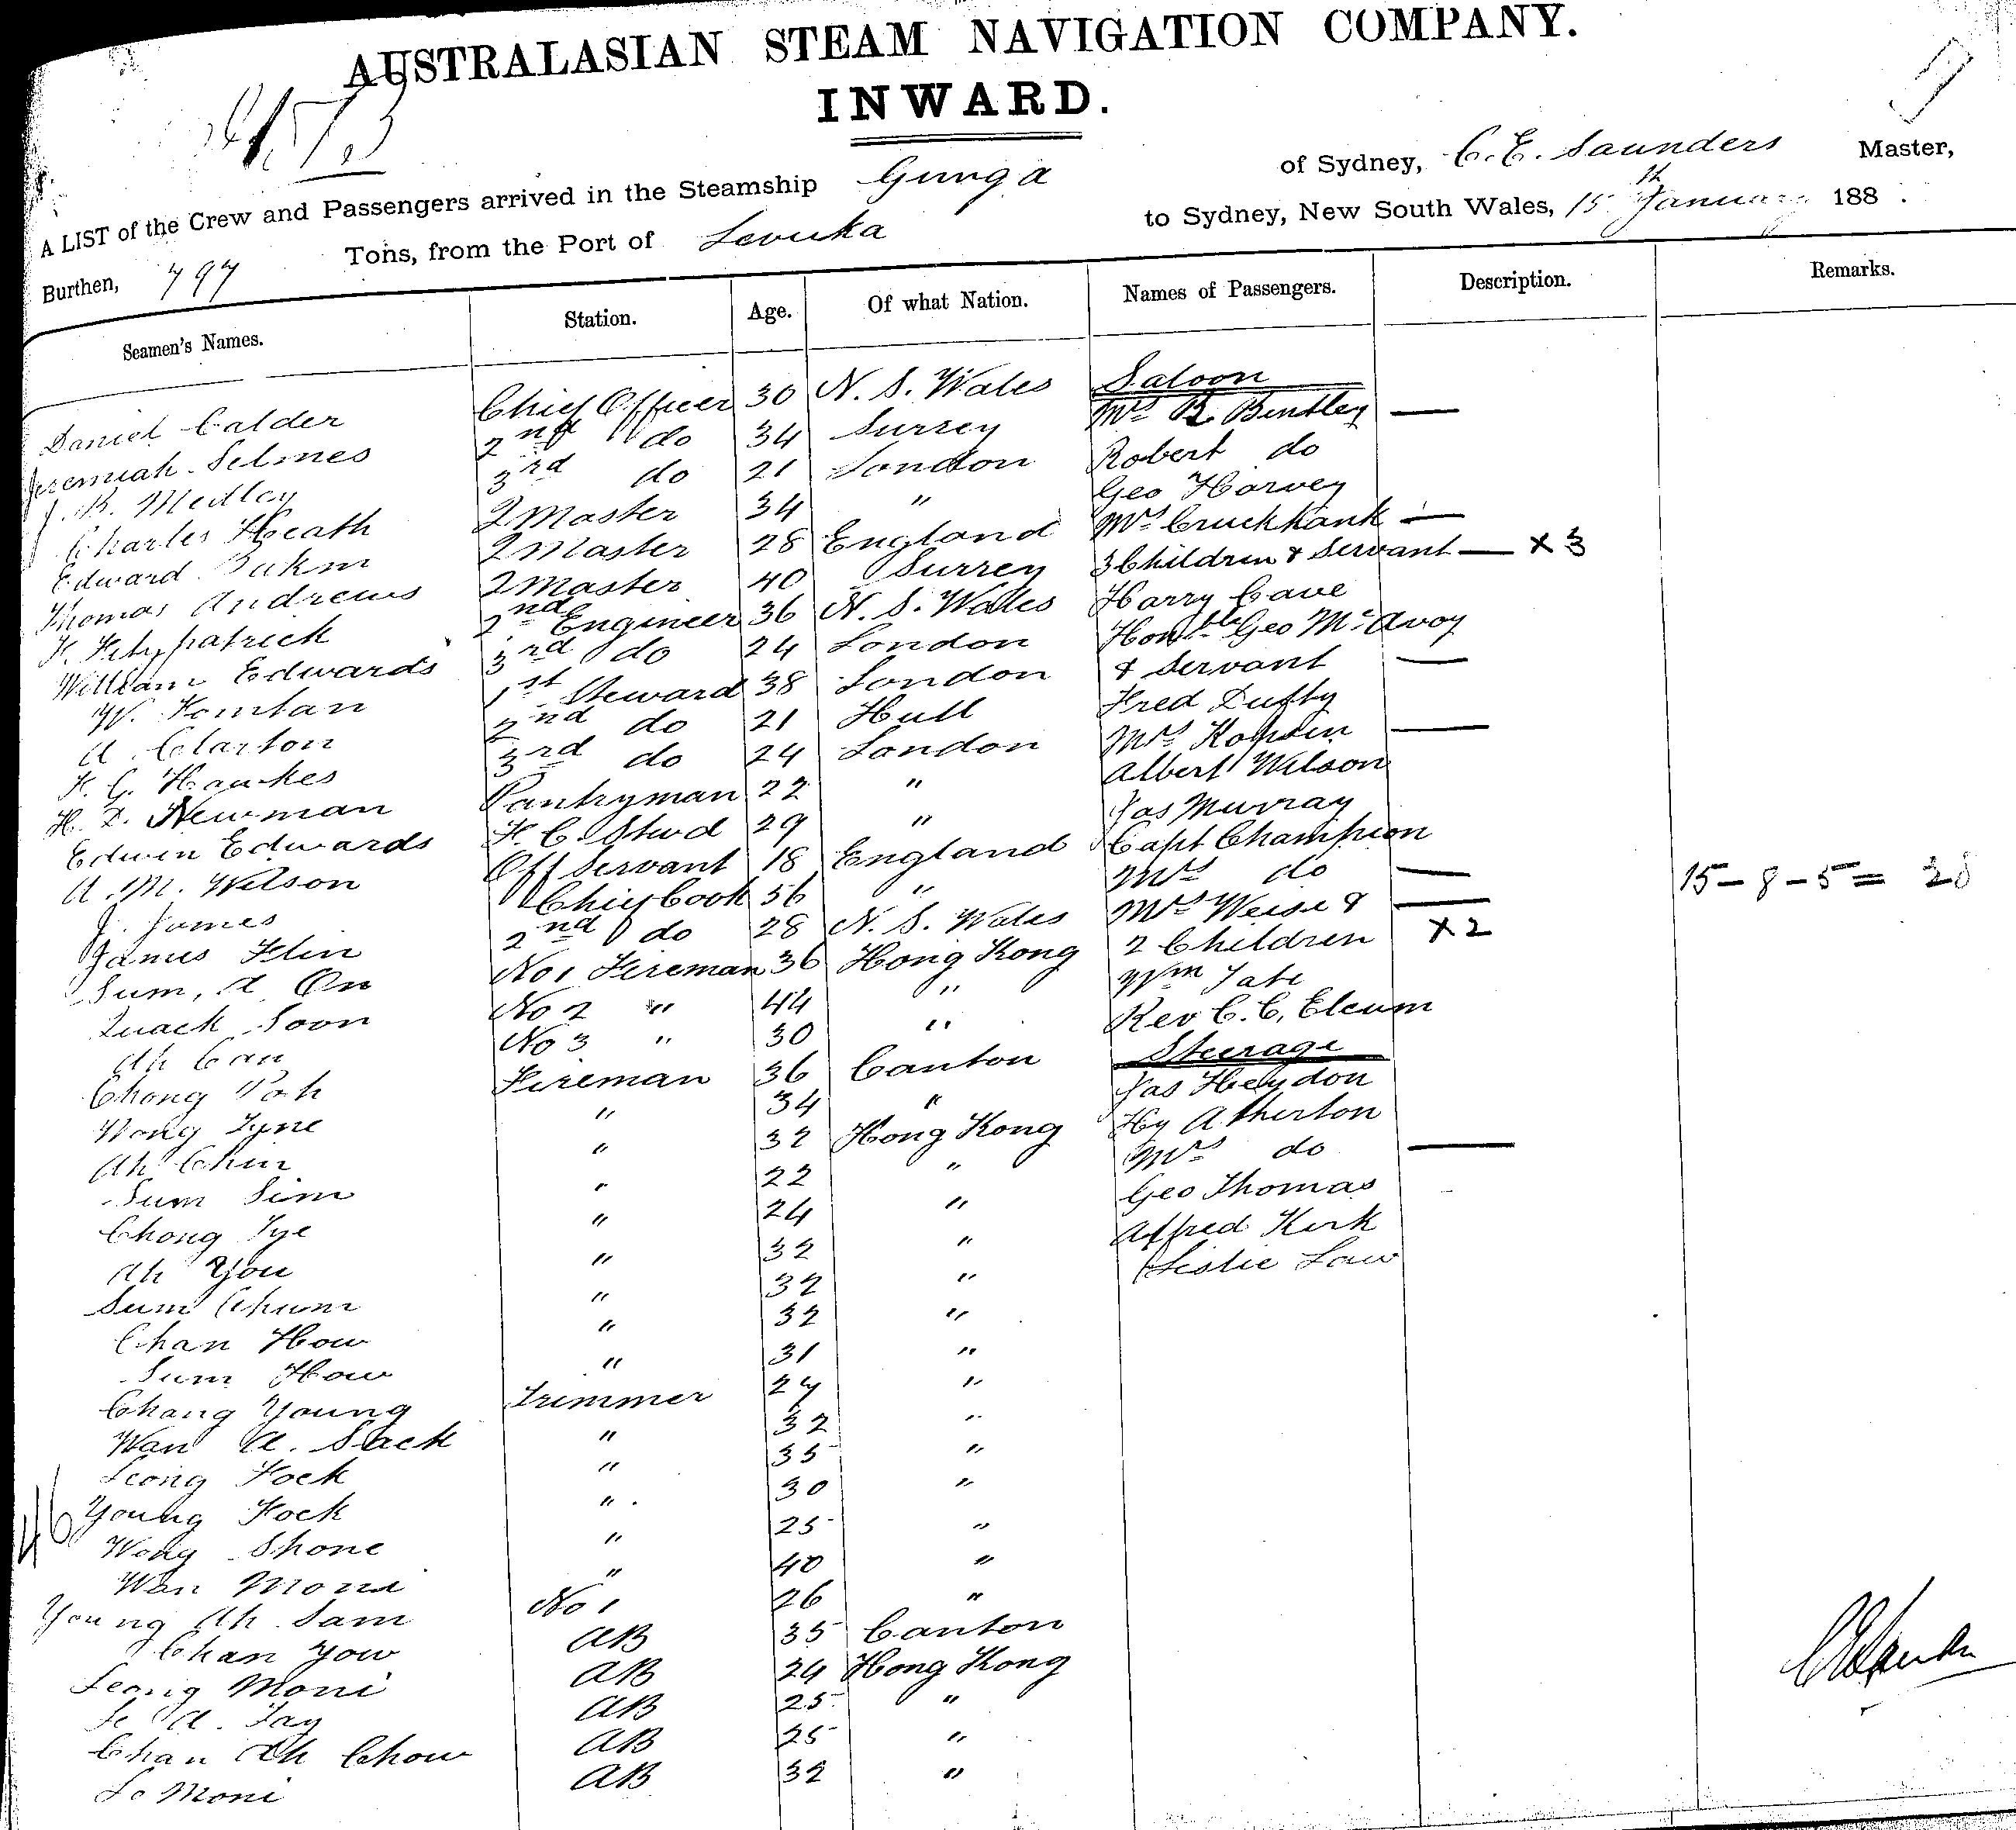 AUSTRALASIAN STEAM NAVIGATION COMPANY.
INWARD.
A LIST of the Crew and Passengers arrived in the Steamship Gunga of Sydney, C. E. Saunders Master,
Burthen, 797 Tons, from the Port of Levuka to Sydney, New South Wales, 15th January 188 .
Seamen's Names. Station. Age. Of what Nation. Names of Passengers. Description. Remarks.
Saloon
Daniel Calder Chief Officer 30 N. S. Wales Mrs R. Bentley —
Jeremiah Selmes 2nd do 34 Surrey Robert do
J. R. Medley 3rd do 21 London Geo Harvey
Charles Heath Q Master 34 " Mrs Cruickkank —
Edward Q Master 28 England 3 Children & Servant — x 3
Thomas Andrews Q Master 40 Surrey Harry Cave
K. Fitzpatrick 2nd Engineer 36 N. S. Wales Honble Geo McAvoy
William Edwards 3rd do 24 London & Servant —
W. 1st Steward 38 London Fred Duffy
A. Clarton 2nd do 21 Hull Mrs —
H. G. Hawkes 3rd do 24 London Albert Wilson
H. Newman Pantryman 22 " Jas Murray
Edwin Edwards F. C. Stwd 29 " Capt Champion
A. M. Wilson Off Servant 18 England Mrs do —
J. James Chief Cook 56 " Mrs Weise & — 15 – 8 – 5 = 28
James Flin 2nd do 28 N. S. Wales 2 Children x 2
Sum, A On No 1 Fireman 36 Hong Kong Wm Tate
Quack Soon No 2 " 44 " Rev C. C. Elcum
Ah Can No 3 " 30 " Steerage
Chong Poh Fireman 36 Canton Jas Heydon
Wong Tyne " 34 " Hy Atherton
Ah Chin " 32 Hong Kong Mrs do —
Sum Sim " 22 " Geo Thomas
Chong Tye " 24 " Alfred Kirk
Ah You " 32 " Leslie Law
Sum Chum " 32 "
Chan How " 32 "
Sum How " 31 "
Chang Young Trimmer 27 "
Wan A. Sack " 32 "
Leong Fock " 35 "
Young Fock " 30 "
46
Wong Shone " 25 "
Wan Moni " 40 "
Young Ah Sam No 1 26 "
Chan Yow AB 35 Canton
Leong Moni AB 24 Hong Kong
Le A. Fay AB 25 "
Chan Ah Chow AB 25 "
Lo Moni AB 32 "